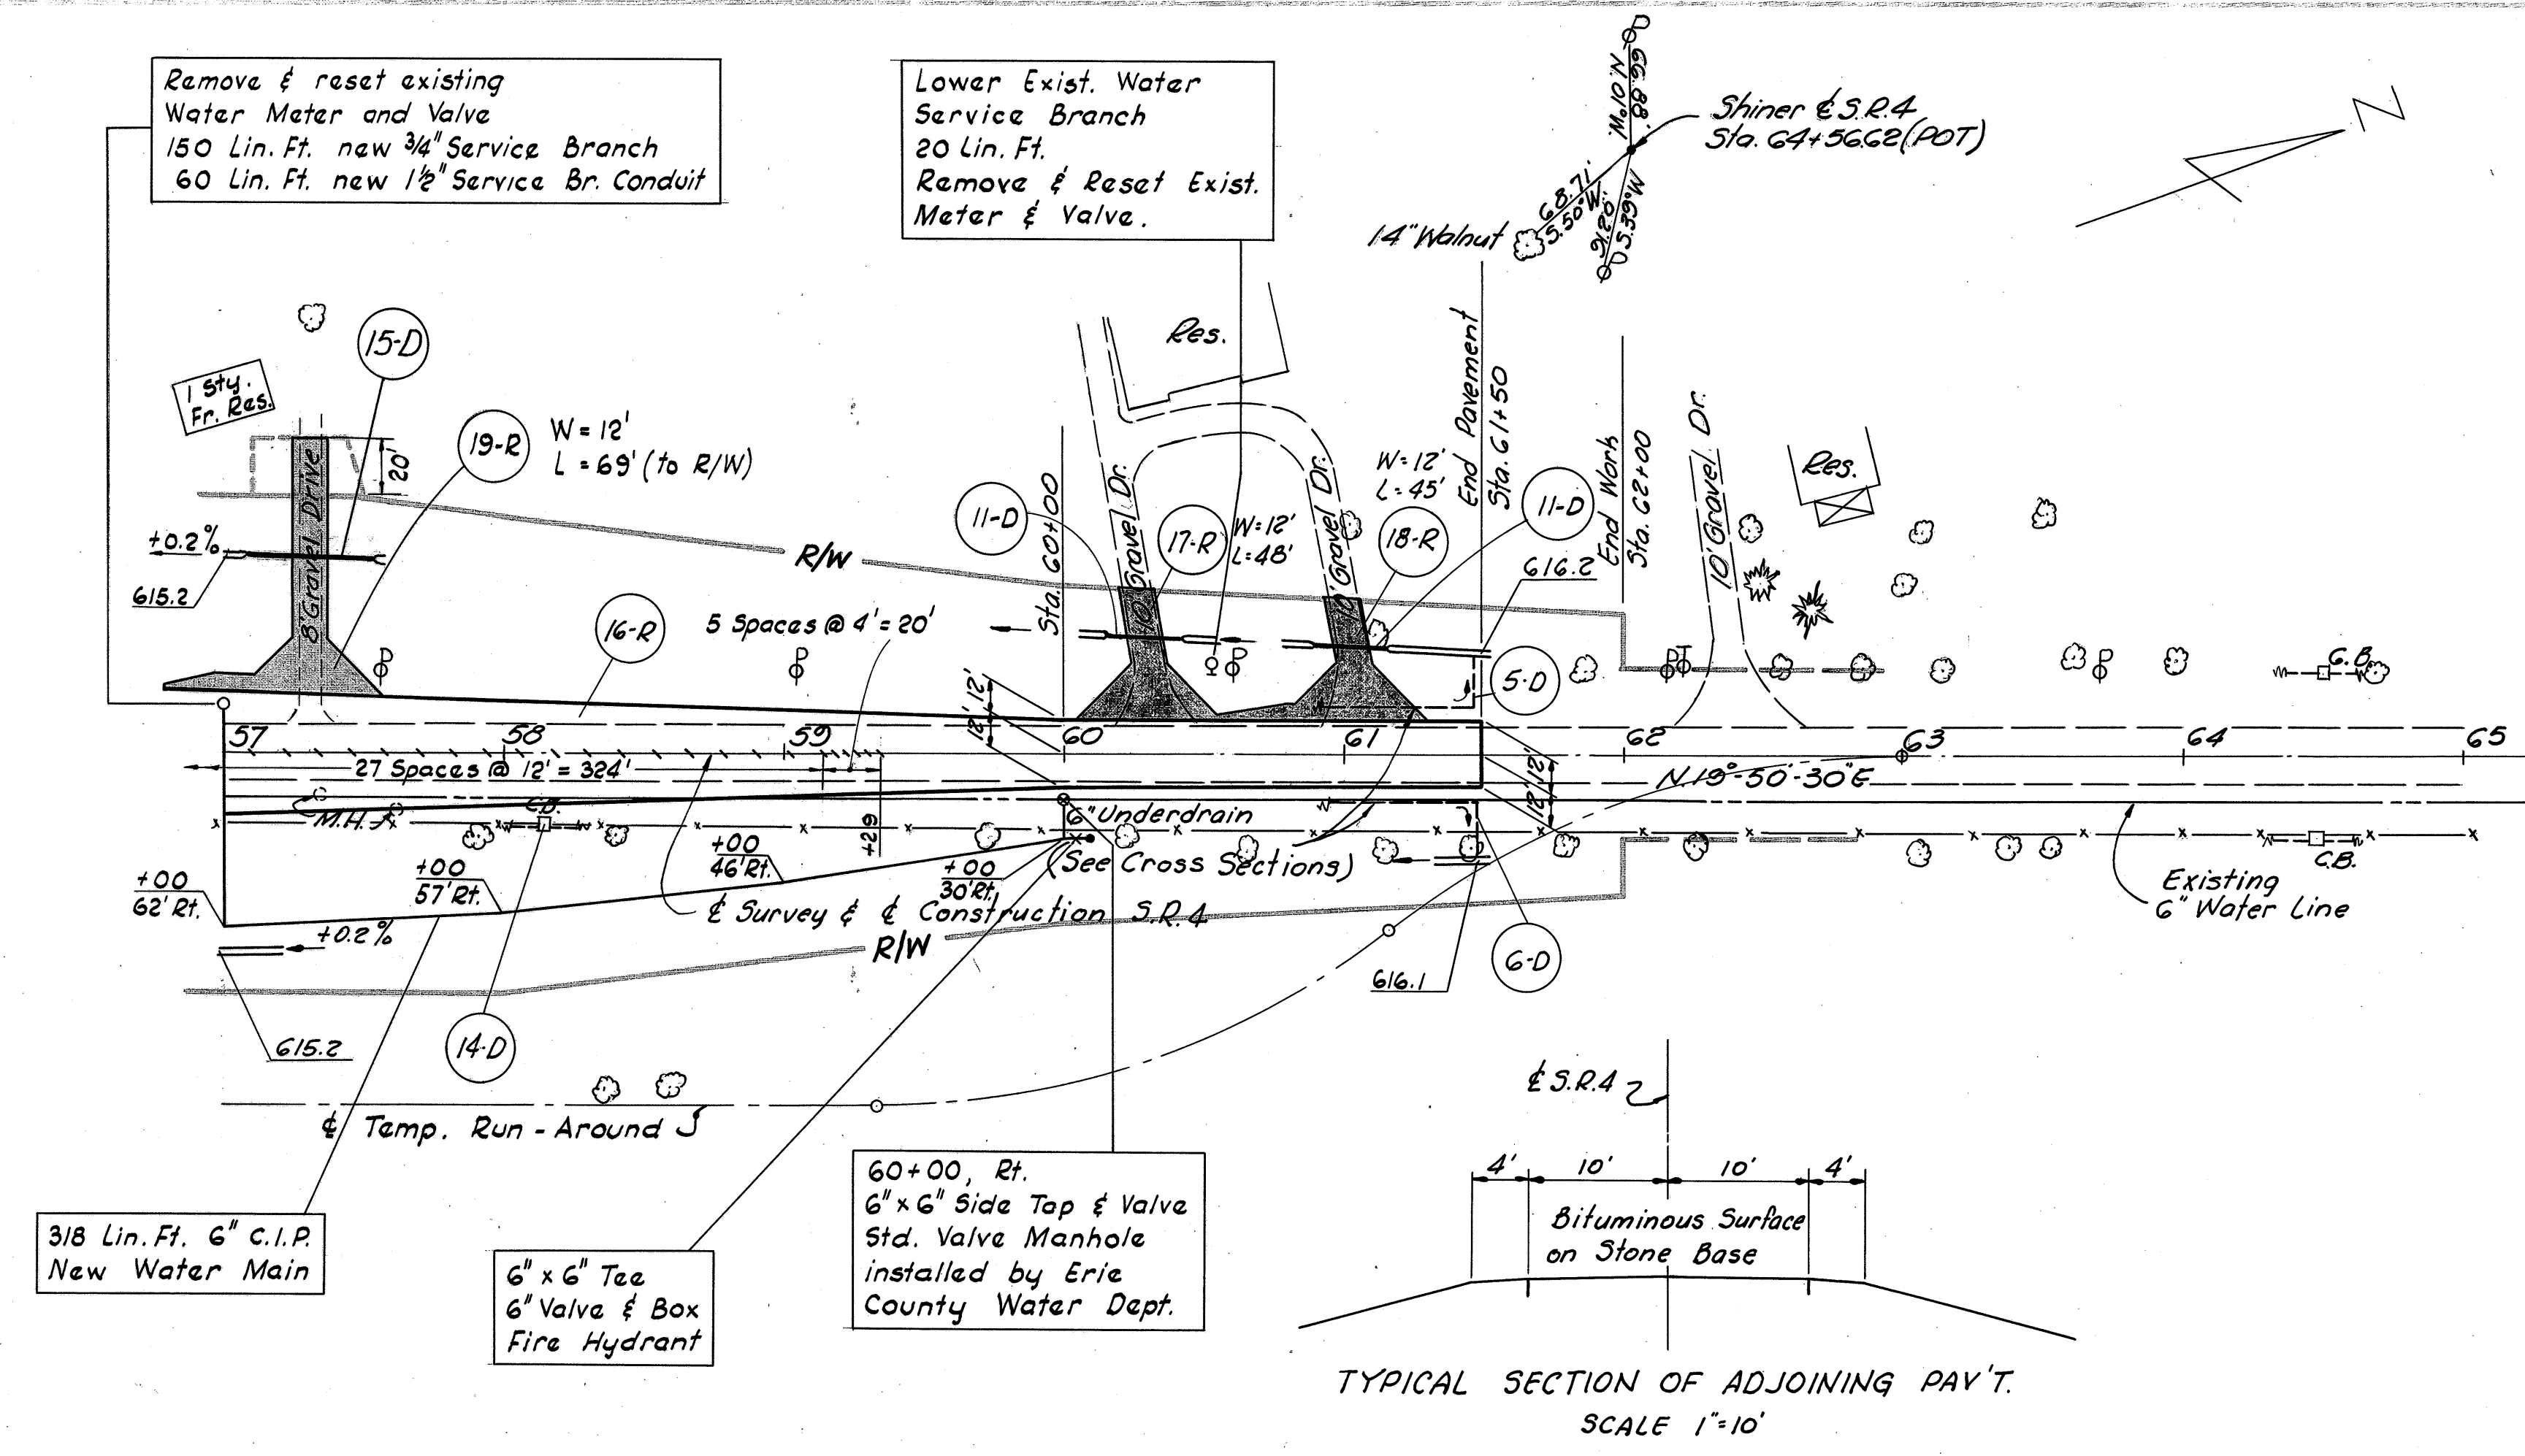 Remove & reset existing
Water Meter and Valve
150 Lin. Ft. new 3/4" Service Branch
60 Lin. Ft. new 1½" Service Br. Conduit
Lower Exist. Water
Service Branch
20 Lin. Ft.
Remove & Reset Exist.
Meter & Valve.
N.10°W.
66.88'
Shiner ℄ S.R.4
Sta. 64+56.62 (POT)
68.71'
S.50°W.
91.20'
S.39°W
14" Walnut
N
1 Sty.
Fr. Res.
15-D
19-R
W = 12'
L = 69' (to R/W)
20'
8' Gravel Drive
+0.2%
615.2
R/W
16-R
5 Spaces @ 4' = 20'
Sta. 60+00
11-D
10' Gravel Dr.
17-R
W=12'
L=48'
Res.
10' Gravel Dr.
W=12'
L=45'
18-R
End Pavement
Sta. 61+50
11-D
616.2
End Work
Sta. 62+00
10' Gravel Dr.
Res.
5-D
C.B.
12'
12'
57
58
59
60
61
62
63
64
65
27 Spaces @ 12' = 324'
12'
12'
N.19°-50'-30"E
M.H.
C.B.
+29
6" Underdrain
(See Cross Sections)
+00
62' Rt.
+00
57' Rt.
+00
46' Rt.
+00
30' Rt.
℄ Survey & ℄ Construction S.R.4
R/W
+0.2%
615.2
14-D
616.1
6-D
C.B.
Existing
6" Water Line
℄ Temp. Run-Around
318 Lin. Ft. 6" C.I.P.
New Water Main
6" x 6" Tee
6" Valve & Box
Fire Hydrant
60+00, Rt.
6" x 6" Side Tap & Valve
Std. Valve Manhole
installed by Erie
County Water Dept.
℄ S.R.4
4'
10'
10'
4'
Bituminous Surface
on Stone Base
TYPICAL SECTION OF ADJOINING PAV'T.
SCALE 1"=10'